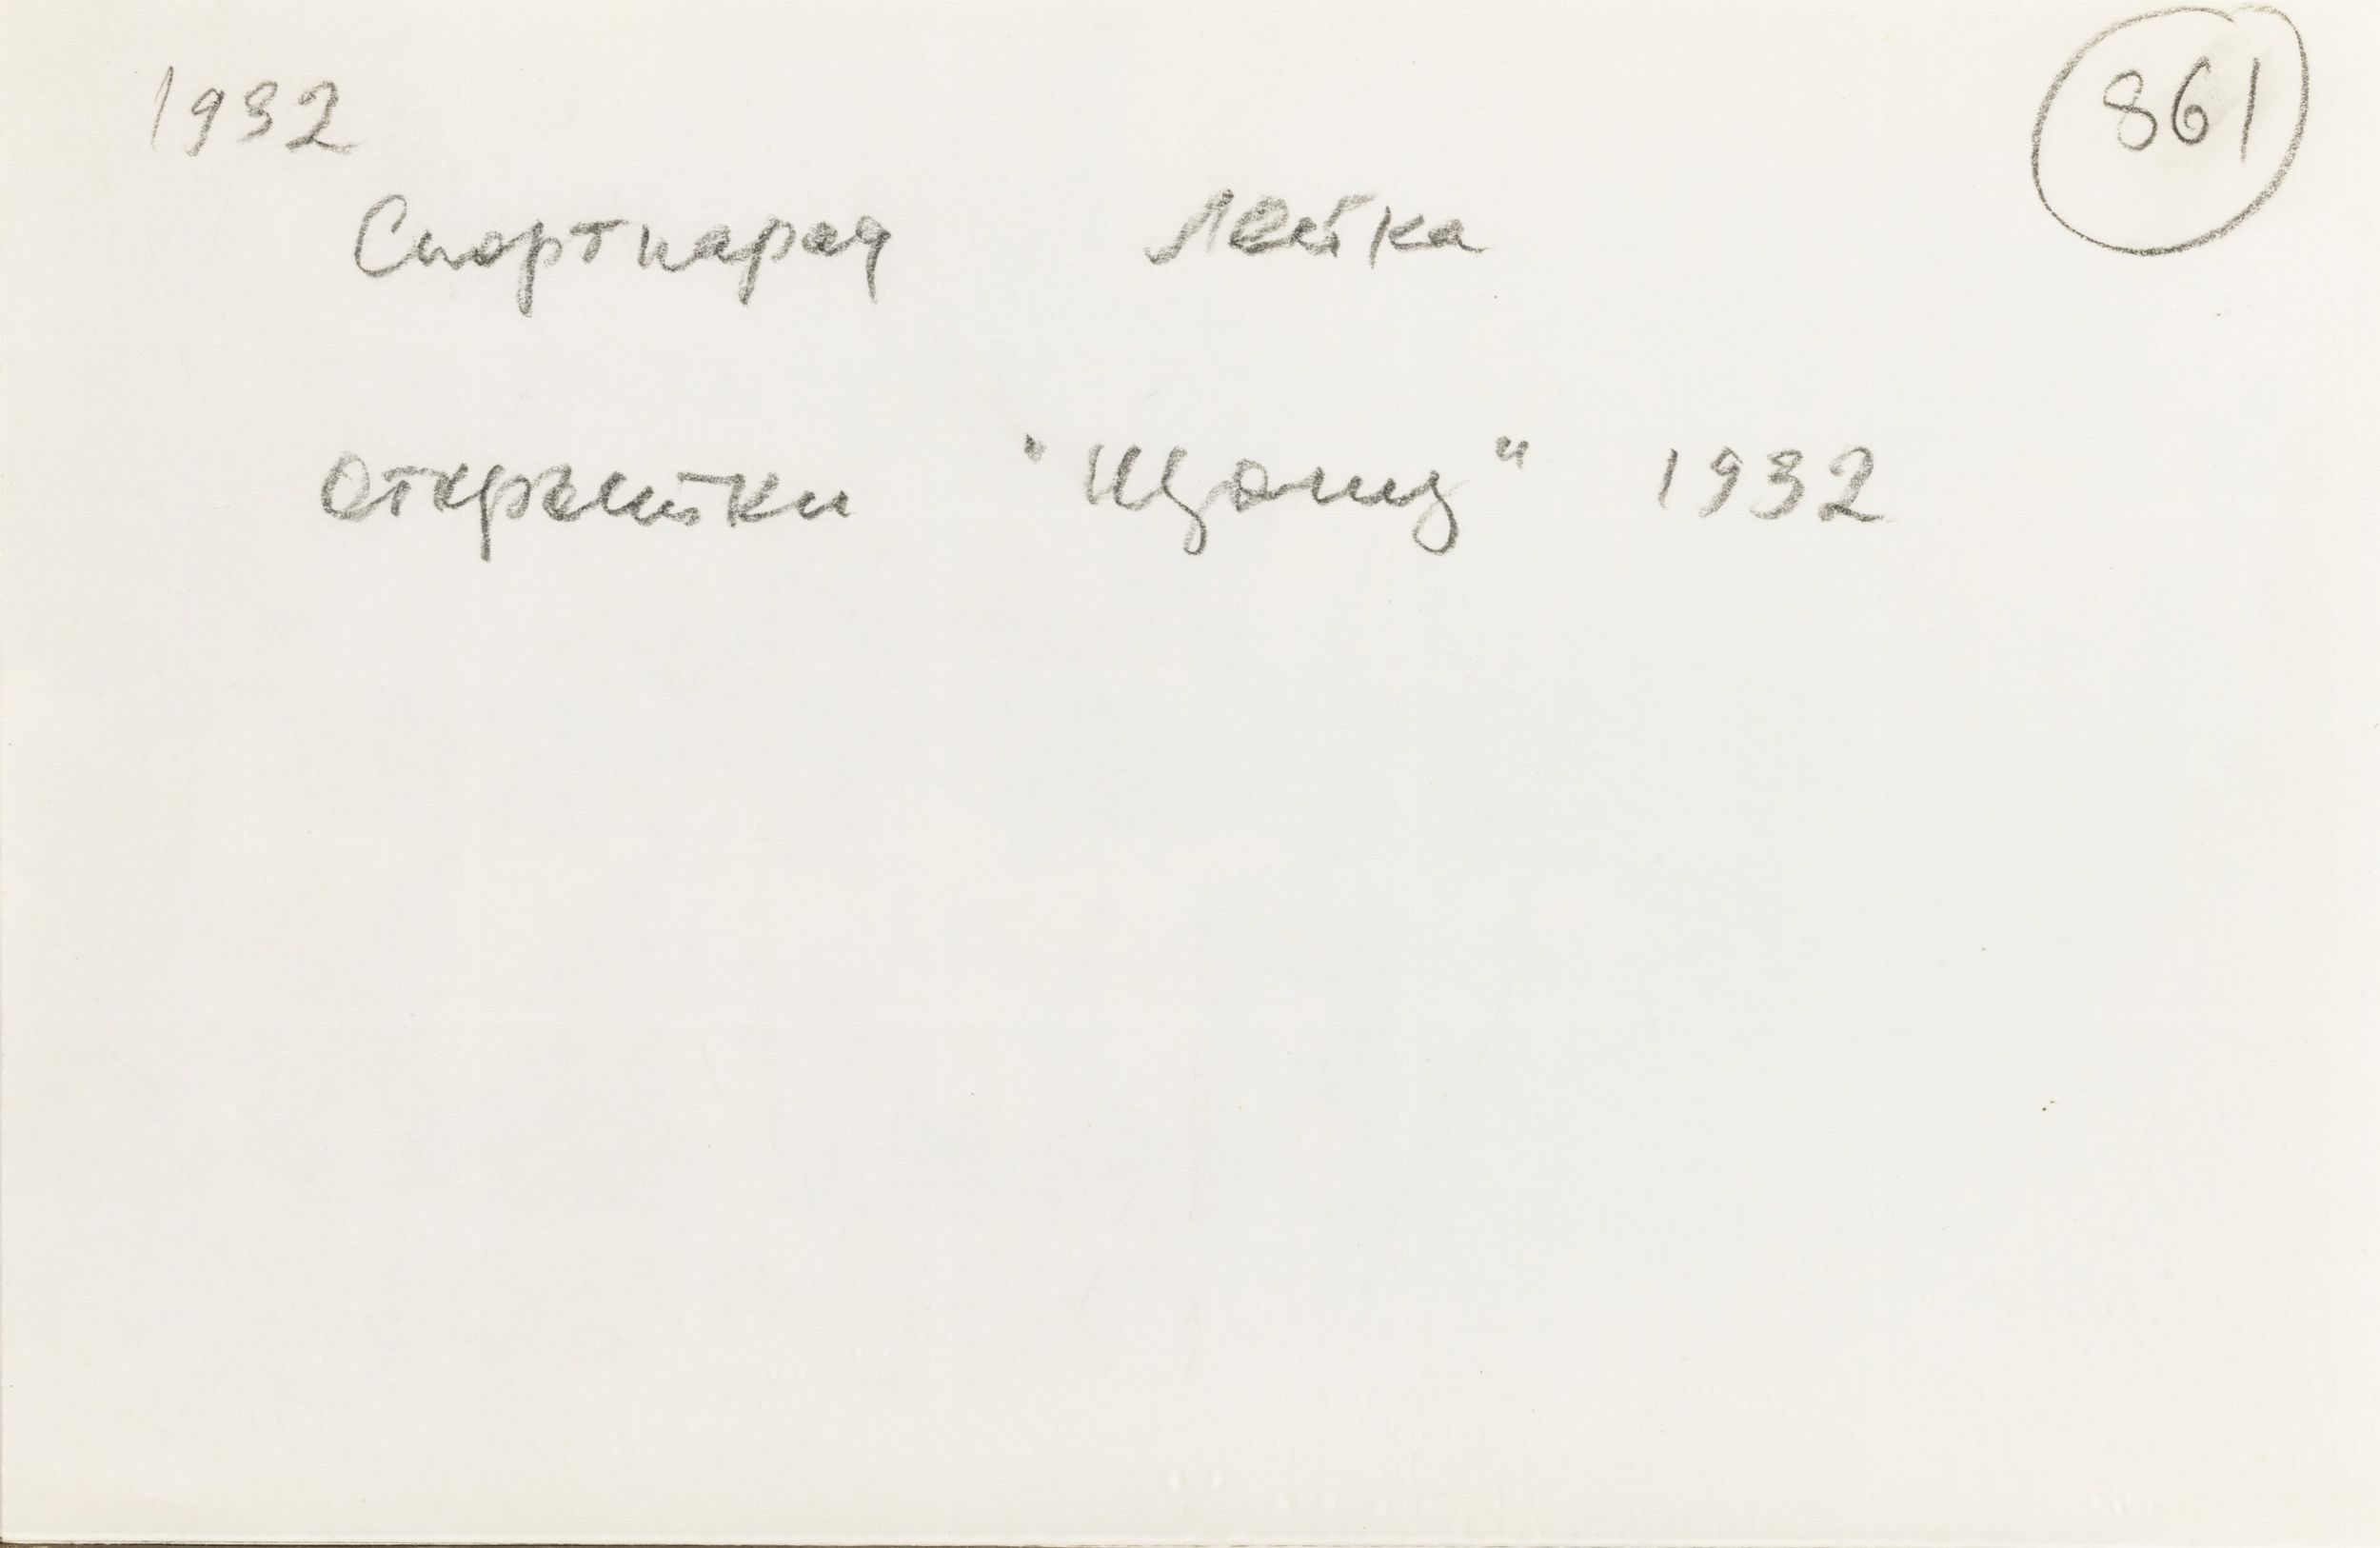 1932 861
Спортпарад Лейка
Открытки "Изогиз" 1932